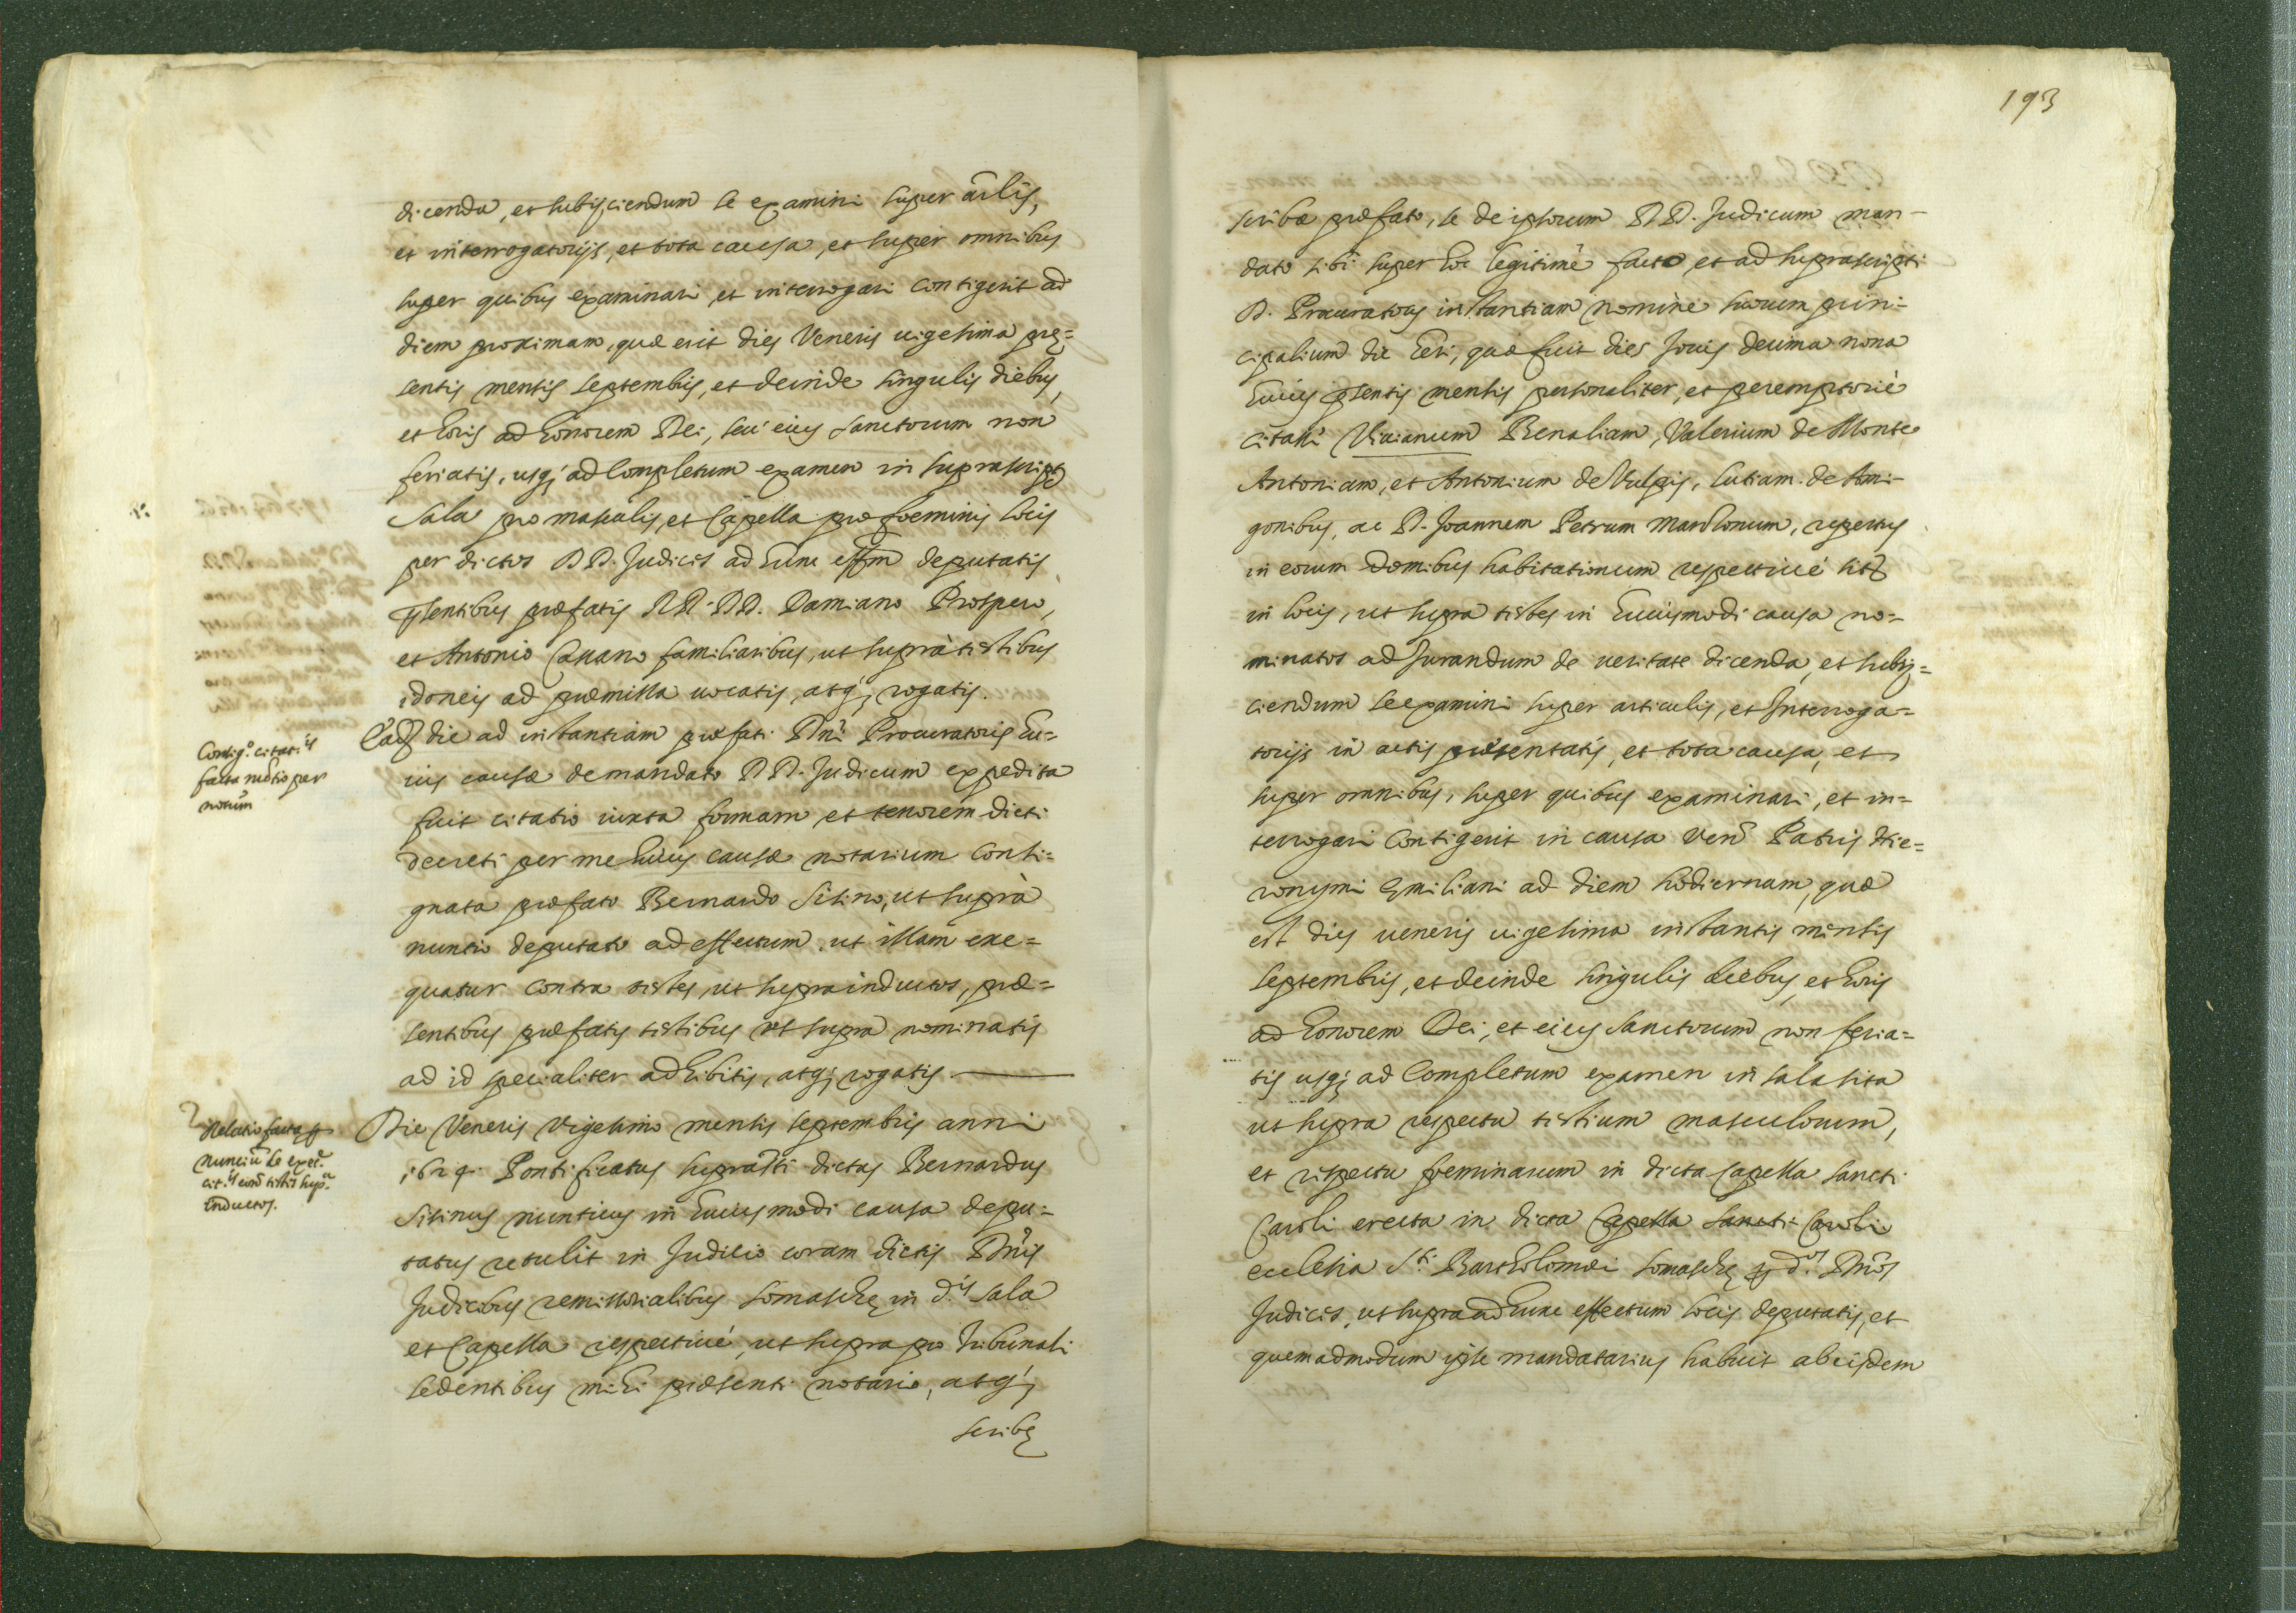 dicenda, et subijciendum se examini super ar̃lis,
et interrogatorijs, et tota causa, et super omnibus
super quibus examinari et interrogari contigerit ad
diem proximam, quæ erit dies Veneris uigesima prę=
sentis mensis septembris, et deinde singulis diebus,
et horis ad honorem Dei, seu eius sanctorum non
feriatis, usq; ad completum examen in suprascript
sala pro masculis, et Capella pro foeminis locis
per dictos DD. Judices ad hunc effm deputatis
pñsentibus præfatis RR. DD. Damiano Prospero,
et Antonio Cauano familiaribus, ut suprà testibus
idoneis ad præmissa uocatis, atq; rogatis.
Consig.º citat.is
facta nũtio per
notum̃
Ead die ad instantiam præfati Dni Procuratoris hu=
ius causæ de mandato DD. Judicum expedita
fuit citatio iuxta formam et tenorem dicti
decreti per me huius causæ notarium consi=
gnata præfato Bernardo Sitino, ut suprà
nuntio deputato ad effectum ut illam exe=
quatur contra testes, ut supra inductos, præ=
sentibus præfatis testibus ut supra nominatis
ad id specialiter adhibitis, atq; rogatis.
Relatio facta p
nunciũ de exec.
cit.is cont̃ testes sup.a
inductos.
Die Veneris Vigesimo mensis septembris anni
1624. Pontificatus suprasti dictus Bernardus
Sitinus nuntius in huiusmodi causa depu=
tatus retulit in Judicio coram dictis Dñis
Judicibus remissorialibus Somaschę in d.is sala
et Capella respectiuè, ut supra pro Tribunali
sedentibus mihi præsenti notario, atq;
scribę
193
scribæ præfato, se de ipsorum DD. Judicum man-
dato sibi super hoc legitimè facto et ad suprascripti
D. Procuratoris instantiam nomine suorum prin=
cipalium die heri, quæ fuit dies Jouis decima nona
huius pñsentis mensis personaliter, et peremptoriè
citasse Viuianum Benaliam, Valerium de Monte
Antoniam, et Antonium de Vulpis, Lutiam de Ami-
gonibus, ac D. Joannem Petrum Marolonum, repertus
in eorum domibus habitationum respectiuè sit
in locis, ut supra testes in huiusmodi causa no=
minatos ad Jurandum de ueritate dicenda, et subij=
ciendum se examini super articulis, et Interroga=
torijs in actis præsentatis, et tota causa, et
super omnibus, super quibus examinari, et in=
terrogari contigerit in causa Ven. Patris Hie=
ronymi Æmiliani ad diem hodiernam, quæ
est dies ueneris uigesima instantis mensis
septembris, et deinde singulis diebus, et horis
ad honorem Dei, et eius sanctorum non feria=
tis usq; ad completum examen in sala sita
ut supra respectu testium masculorum,
et respectu foeminarum in dicta Capella sancti
Caroli erecta in dicta Capella sancti Caroli
ecclesia S.ti Bartholomæi Somaschę p d.os Dños
Judices, ut supra ad hunc effectum locis deputatis, et
quemadmodum ipse mandatarius habuit ab eisdem